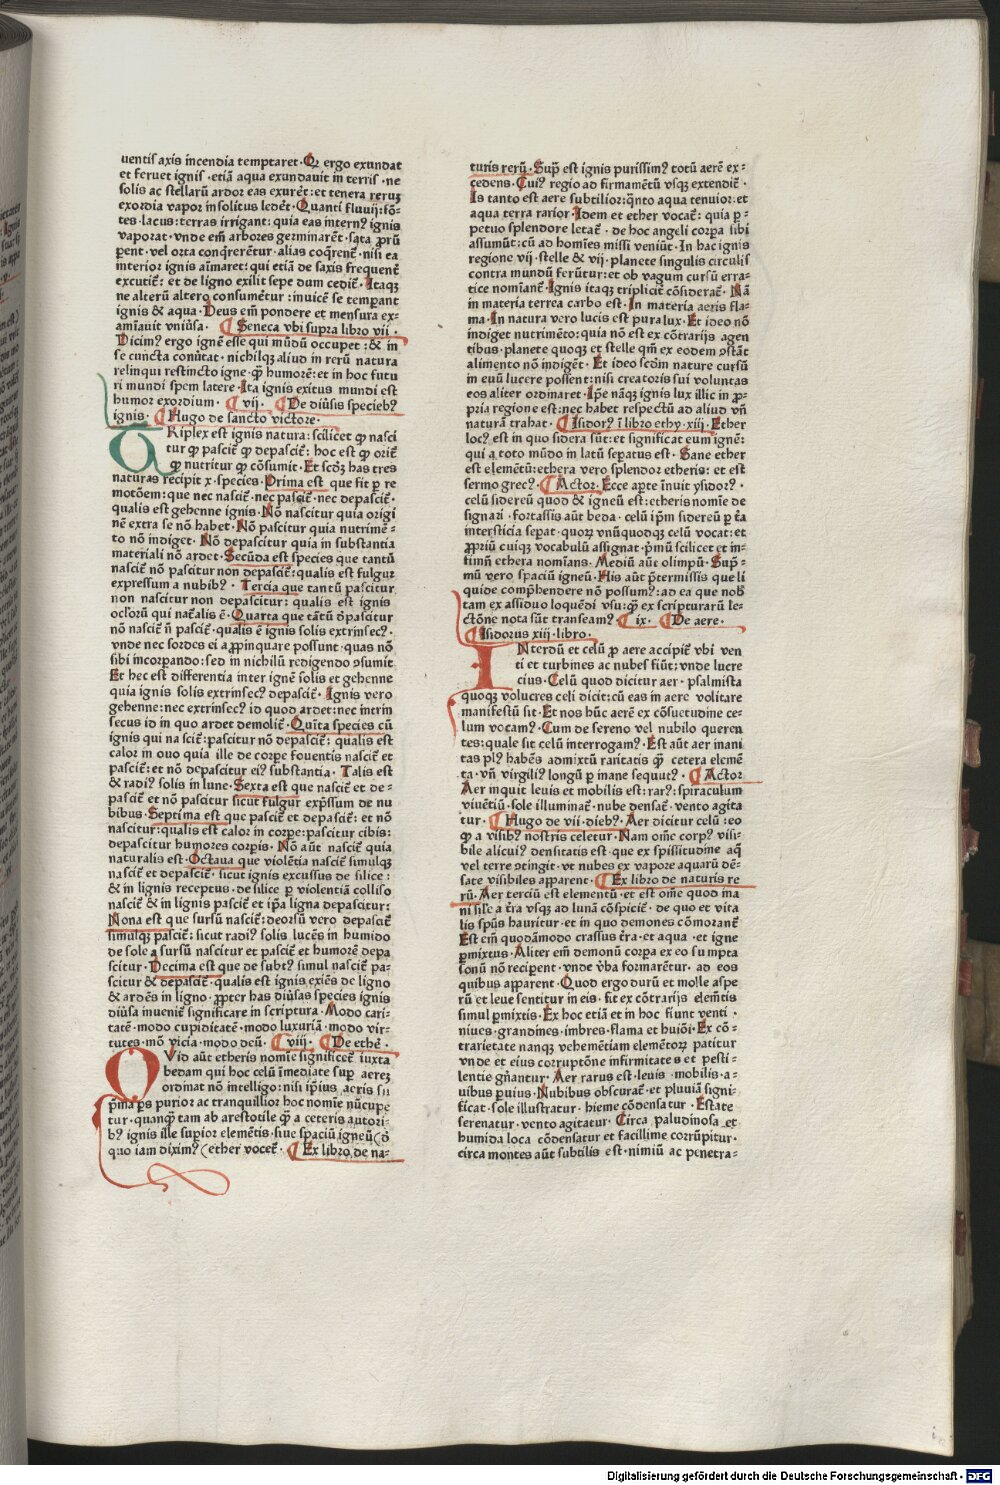 uentis axis incendia temptaret · Qr ergo exundat
et feruet ignis · etiã aqua exundauit in terris · ne
solis ac stellarũ ardor eas exurẽt : et tenera rerum
exordia vapor insolitus ledẽt · Quanti fluuij : fõ=
tes · lacus : terras irrigant : quia eas intern⁹ ignis
vaporat · vnde em̃ arbores germinarẽt · sata ꝓrũ
nisi ea
interior ignis aĩmaret : qui etiã de saxis frequent̃
excutit̃ : et de ligno exilit sepe dum cedit̃ · Itaqz
ne alterũ altero consumẽtur : inuicẽ se temꝑant
ignis & aqua · Deus em̃ pondere et mensura ex=
amĩauit vniũsa · ¶ Seneca vbi supra libro vii ·
Dicim⁹ ergo ignẽ esse qui mũdũ occupet : & in
se cuncta conũtat · nichilqz aliud in rerũ natura
relinqui restincto igne · qͣ̃ humorẽ : et in hoc futu
ri mundi spem latere · Ita ignis exitus mundi est
humor exordium · ¶ vij · ¶ De diũsis specieb⁹
ignis · ¶ Hugo de sancto victore ·
TRiplex est ignis natura : scilicet ꝙ nasci
tur ꝙ pascit̃ ꝙ depascit̃ : hoc est ꝙ orit̃
ꝙ nutritur ꝙ cõsumit · Et scd̃z has tres
naturas recipit x · species · Prima est que fit ꝑ re
motõem : que nec nascit̃ · nec pascit̃ · nec depascit̃ ·
qualis est gehenne ignis · Nõ nascitur quia origi
nẽ extra se nõ habet · Nõ pascitur quia nutrimẽ=
to nõ indiget · Nõ depascitur quia in substantia
materiali nõ ardet · Secũda est species que tantũ
nascit̃ nõ pascitur non depascit̃ : qualis est fulgur
expressum a nubib⁹ · Tercia que tantũ pascitur
non nascitur non depascitur : qualis est ignis
oclorũ qui nat̃alis ẽ · Quarta que tãtũ d̃pascitur
nõ nascit̃ ñ pascit̃ · qualis ẽ ignis solis extrinsec⁹ ·
vnde nec sordes ei aꝓpinquare possunt · quas nõ
sibi incorpando : sed in nichilũ redigendo ꝯsumit
Et hec est differentia inter ignẽ solis et gehenne
quia ignis solis extrinsec⁹ depascit̃ · Ignis vero
gehenne : nec extrinsec⁹ id quod ardet : nec intrin
secus id in quo ardet demolit̃ · Quĩta species cũ
ignis qui nascit̃ : pascitur nõ depascit̃ : qualis est
calor in ouo quia ille de corpe fouentis nascit̃ et
pascit̃ : et nõ depascitur ei⁹ substantia · Talis est
& radi⁹ solis in lune · Sexta est que nascit̃ et de=
pascit̃ et nõ pascitur sicut fulgur exp̃ssum de nu
bibus · Septima est que pascit̃ et depascit̃ : et nõ
nascitur : qualis est calor in corpe : pascitur cibis :
depascitur humores corpis · Nõ aũt nascit̃ quia
naturalis est · Octaua que violẽtia nascit̃ simulqz
nascit̃ et depascit̃ : sicut ignis excussus de silice :
& in lignis receptus · de silice ꝑ violentiã colliso
nascit̃ & in lignis pascit̃ et ip̃a ligna depascitur :
Nona est que sursũ nascit̃ : deorsũ vero depascit̃
simulqz pascit̃ : sicut radi⁹ solis lucẽs in humido
de sole a sursũ nascitur et pascit̃ et humorẽ depa
scitur · Decima est que de subt⁹ simul nascit̃ pa=
scitur & depascit̃ · qualis est ignis exiẽs de ligno
& ardẽs in ligno · ꝓpter has diũsas species ignis
diũsa inuenit̃ significare in scriptura · Modo cari=
tatẽ · modo cupiditatẽ · modo luxuriã · modo vir=
tutes · mõ vicia · modo deũ · ¶ viij · ¶ De ethe ·
QVid aũt etheris nomĩe significet̃ iuxta
bedam qui hoc celũ ĩmediate suꝑ aerez
ordinat nõ intelligo : nisi ip̃ius aeris su
p̃ma ꝑs purior ac tranquillior hoc nomĩe nũcupe
tur · quanqͣ̃ tam ab arestotile qͣ̃ a ceteris autori=
b⁹ ignis ille suꝑior elemẽtis · siue spaciũ igneũ ( d̃
quo iam dixim⁹ ( ether vocet̃ · ¶ Ex libro de na=
turis rerũ · Suꝑ est ignis purissim⁹ totũ aerẽ ex=
cedens · Cui⁹ regio ad firmamẽtũ vsqz extendit̃ ·
Is tanto est aere subtilior : q̃nto aqua tenuior : et
aqua terra rarior · Idem et ether vocat̃ : quia ꝑ=
petuo splendore letat̃ · de hoc angeli corpa sibi
assumũt : cũ ad homĩes missi veniũt · In hac ignis
regione vij · stelle & vij · planete singulis circulis
contra mundũ ferũtur : et ob vagum cursũ erra=
tice nomĩant̃ · Ignis itaqz triplicit̃ cõsiderat̃ · Nã
in materia terrea carbo est · In materia aeris fla=
ma · In natura vero lucis est pura lux · Et ideo nõ
indiget nutrimẽto : quia nõ est ex cõtrarijs agen
tibus · planete quoqz et stelle qm̃ ex eodem ꝯstãt
alimento nõ indigẽt · Et ideo scd̃m nature cursũ
in euũ lucere possent : nisi creatoris sui voluntas
eos aliter ordinaret · Ip̃e nãqz ignis lux illic in ꝓ=
pria regione est : nec habet respectũ ad aliud vñ
naturã trahat · ¶ Isidor⁹ ĩ libro ethy · xiij · Ether
loc⁹ est in quo sidera sũt : et significat eum ignẽ :
qui a toto mũdo in latũ seꝑatus est · Sane ether
est elemẽtũ : ethera vero splendor etheris : et est
sermo grec⁹ · ¶ Actor · Ecce aꝑte ĩnuit ysidor⁹ ·
celũ sidereũ quod & igneũ est : etheris nomĩe de
signari · fortassis aũt beda · celũ ip̃m sidereũ ꝑ t̃a
intersticia seꝑat · quorz vnũquodqz celũ vocat : et
ꝓpriũ cuiqz vocabulũ assignat · p̃mũ scilicet et in=
fimũ ethera nomĩans · Mediũ aũt olimpũ · Sup̃=
mũ vero spaciũ igneũ · His aũt p̃termissis que li
quide comp̃hendere nõ possum⁹ : ad ea que nob̃
tam ex assiduo loquẽdi vsu : qͣ̃ ex scripturarũ le=
ctõne nota sũt transeam⁹ · ¶ ix · ¶ De aere ·
¶ Isidorus xiij · libro ·
INterdũ et celũ ꝓ aere accipit̃ vbi ven
ti et turbines ac nubes fiũt : vnde lucre
cius · Celũ quod dicitur aer · psalmista
quoqz volucres celi dicit : cũ eas in aere volitare
manifestũ sit · Et nos hũc aerẽ ex cõsuetudine ce=
lum vocam⁹ · Cum de sereno vel nubilo queren
tes : quale sit celũ interrogam⁹ · Est aũt aer inani
tas pl⁹ habẽs admixtũ raritatis qͣ̃ cetera elemẽ
ta · vñ virgili⁹ longũ ꝑ inane sequut⁹ · ¶ Actor
Aer inquit leuis et mobilis est : rar⁹ : spiraculum
viuẽtiũ · sole illuminat̃ · nube densat̃ · vento agita
tur · ¶ Hugo de vij · dieb⁹ · Aer dicitur celũ : eo
ꝙ a visib⁹ nostris celetur · Nam om̃e corp⁹ visi=
bile alicui⁹ densitatis est · que ex spissitudine aq̃
vel terre ꝯtingit · vt nubes ex vapore aquarũ dẽ=
sate visibiles apparent · ¶ Ex libro de naturis re
rũ · Aer terciũ est elementũ · et est om̃e quod ina
ni sil̃e a t̃ra vsqz ad lunã cõspicit̃ · de quo et vita
lis spũs hauritur · et in quo demones cõmorant̃
Est em̃ quodãmodo crassus t̃ra · et aqua · et igne
ꝑmixtus · Aliter em̃ demonũ corpa ex eo sumpta
sonũ nõ reciꝑent · vnde v̓ba formarẽtur · ad eos
quibus apparent · Quod ergo durũ et molle aspe
rũ et leue sentitur in eis · fit ex cõtrarijs elem̃tis
simul ꝑmixtis · Ex hoc etiã et in hoc fiunt venti ·
niues · grandines · imbres · flama et huiõi · Ex cõ=
trarietate nanqz vehemẽtiam elementorz patitur
vnde et eius corruptõne infirmitates et pesti=
lentie gñantur · Aer rarus est · leuis · mobilis · a=
uibus ꝑuius · Nubibus obscurat̃ · et pluuiã signi=
ficat · sole illustratur · hieme cõdensatur · Estate
serenatur · vento agitatur · Circa paludinosa et
humida loca cõdensatur et facillime corrũpitur ·
circa montes aũt subtilis est · nimiũ ac penetra=
Digitalisierung gefördert durch die Deutsche Forschungsgemeinschaft - DFG